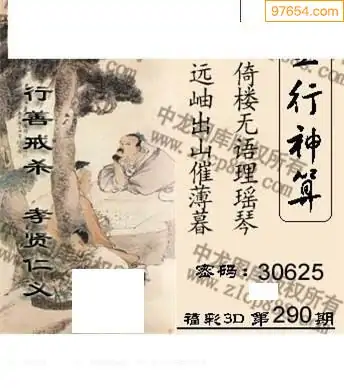 97654.com
行神算
倚楼无语理瑶琴
远岫出山催薄暮
行善戒杀 孝贤仁义
密码：30625
福彩3D 第290期